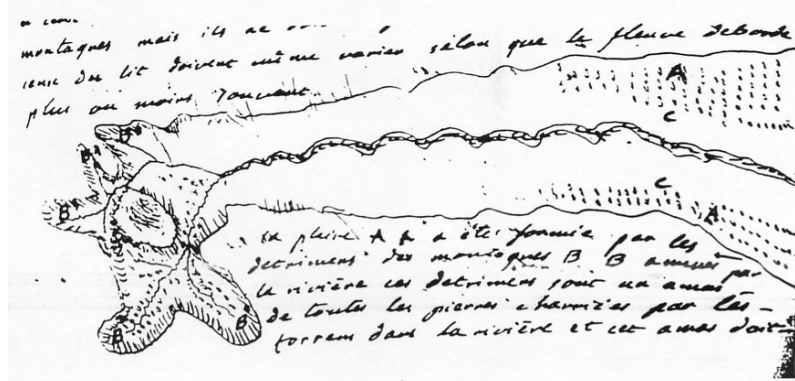 montagnes mais ils ne
ceux du lit doivent même varier selon que le fleuve deborde
plus ou moins souvent
A
C
B
B
B
C
A
B
B
B
la plaine A A a été formée par les
detrimens des montagnes B B amenés par
la rivière ces detrimens sont un amas
de toutes les pierres charriées par les
torrens dans la rivière et cet amas doit